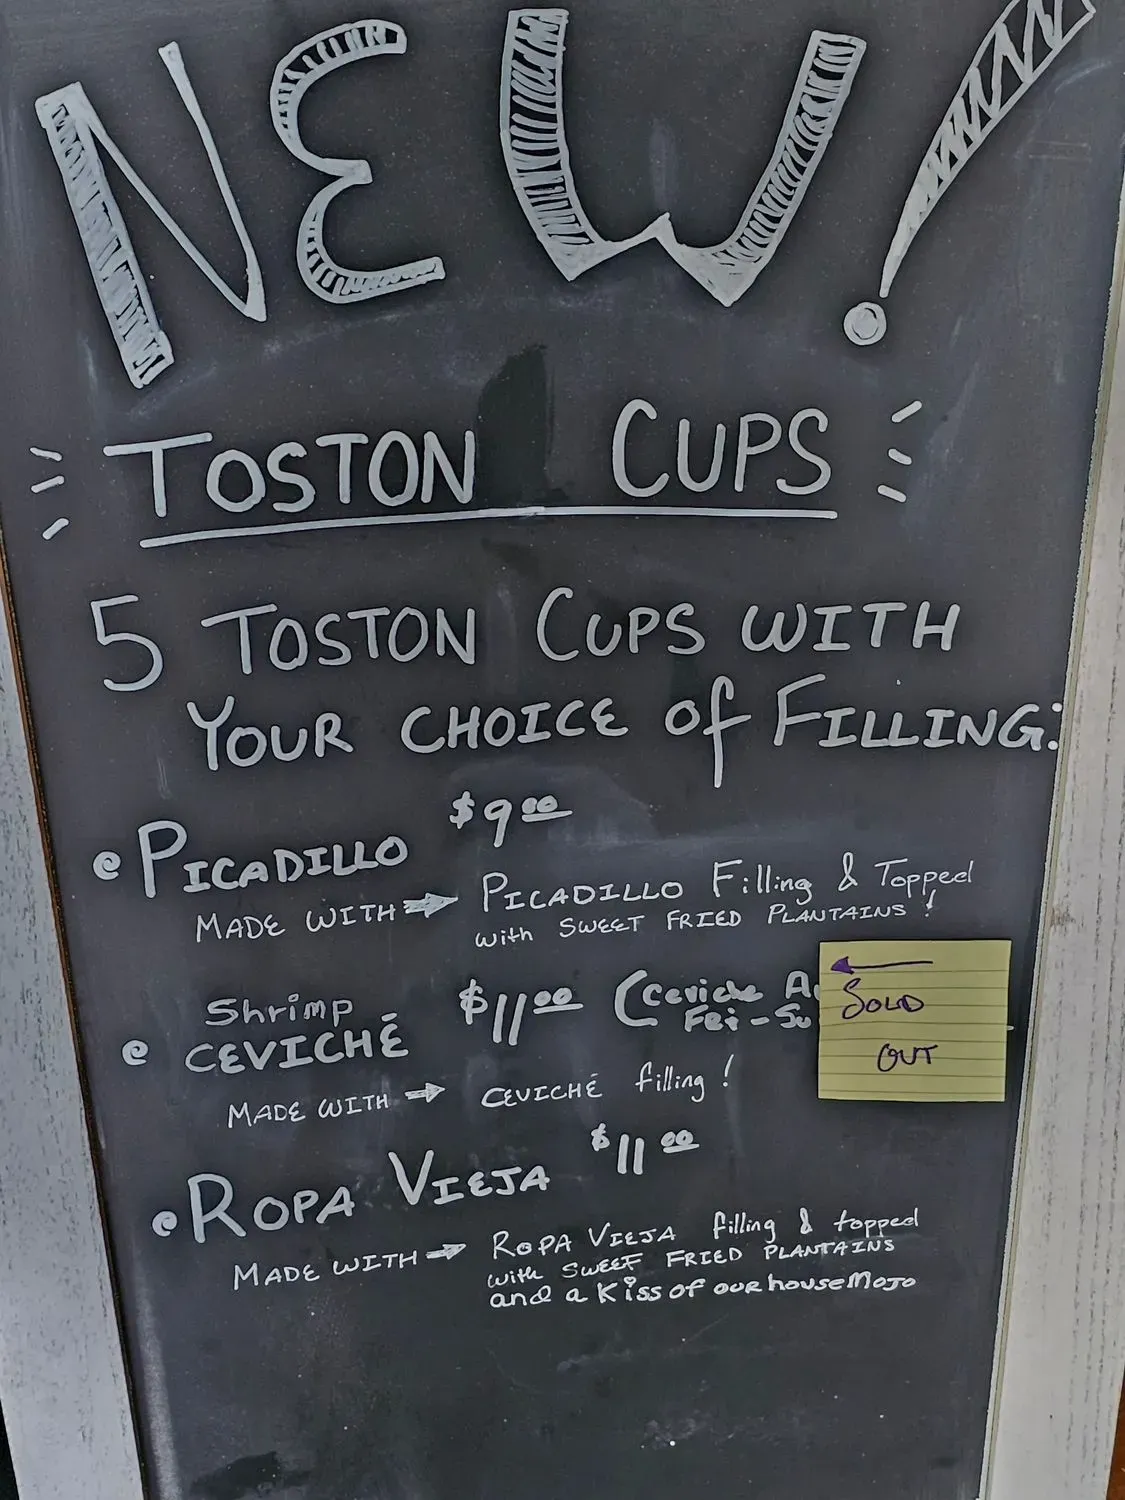 NEW!
TOSTON CUPS
5 TOSTON CUPS WITH
YOUR CHOICE of FILLING:
PICADILLO $9.00
MADE WITH → PICADILLO Filling & Topped
with SWEET FRIED PLANTAINS!
Shrimp
CEVICHÉ $11.00 (Ceviche
Fri - Su
MADE WITH → CEVICHÉ filling!
←
SOLD
OUT
ROPA VIEJA $11.00
MADE WITH → ROPA VIEJA filling & topped
with SWEET FRIED PLANTAINS
and a Kiss of our house MOJO